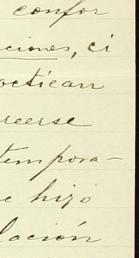 confor
ciones, ci
actican
reerse
tempora-
e hijo
lación